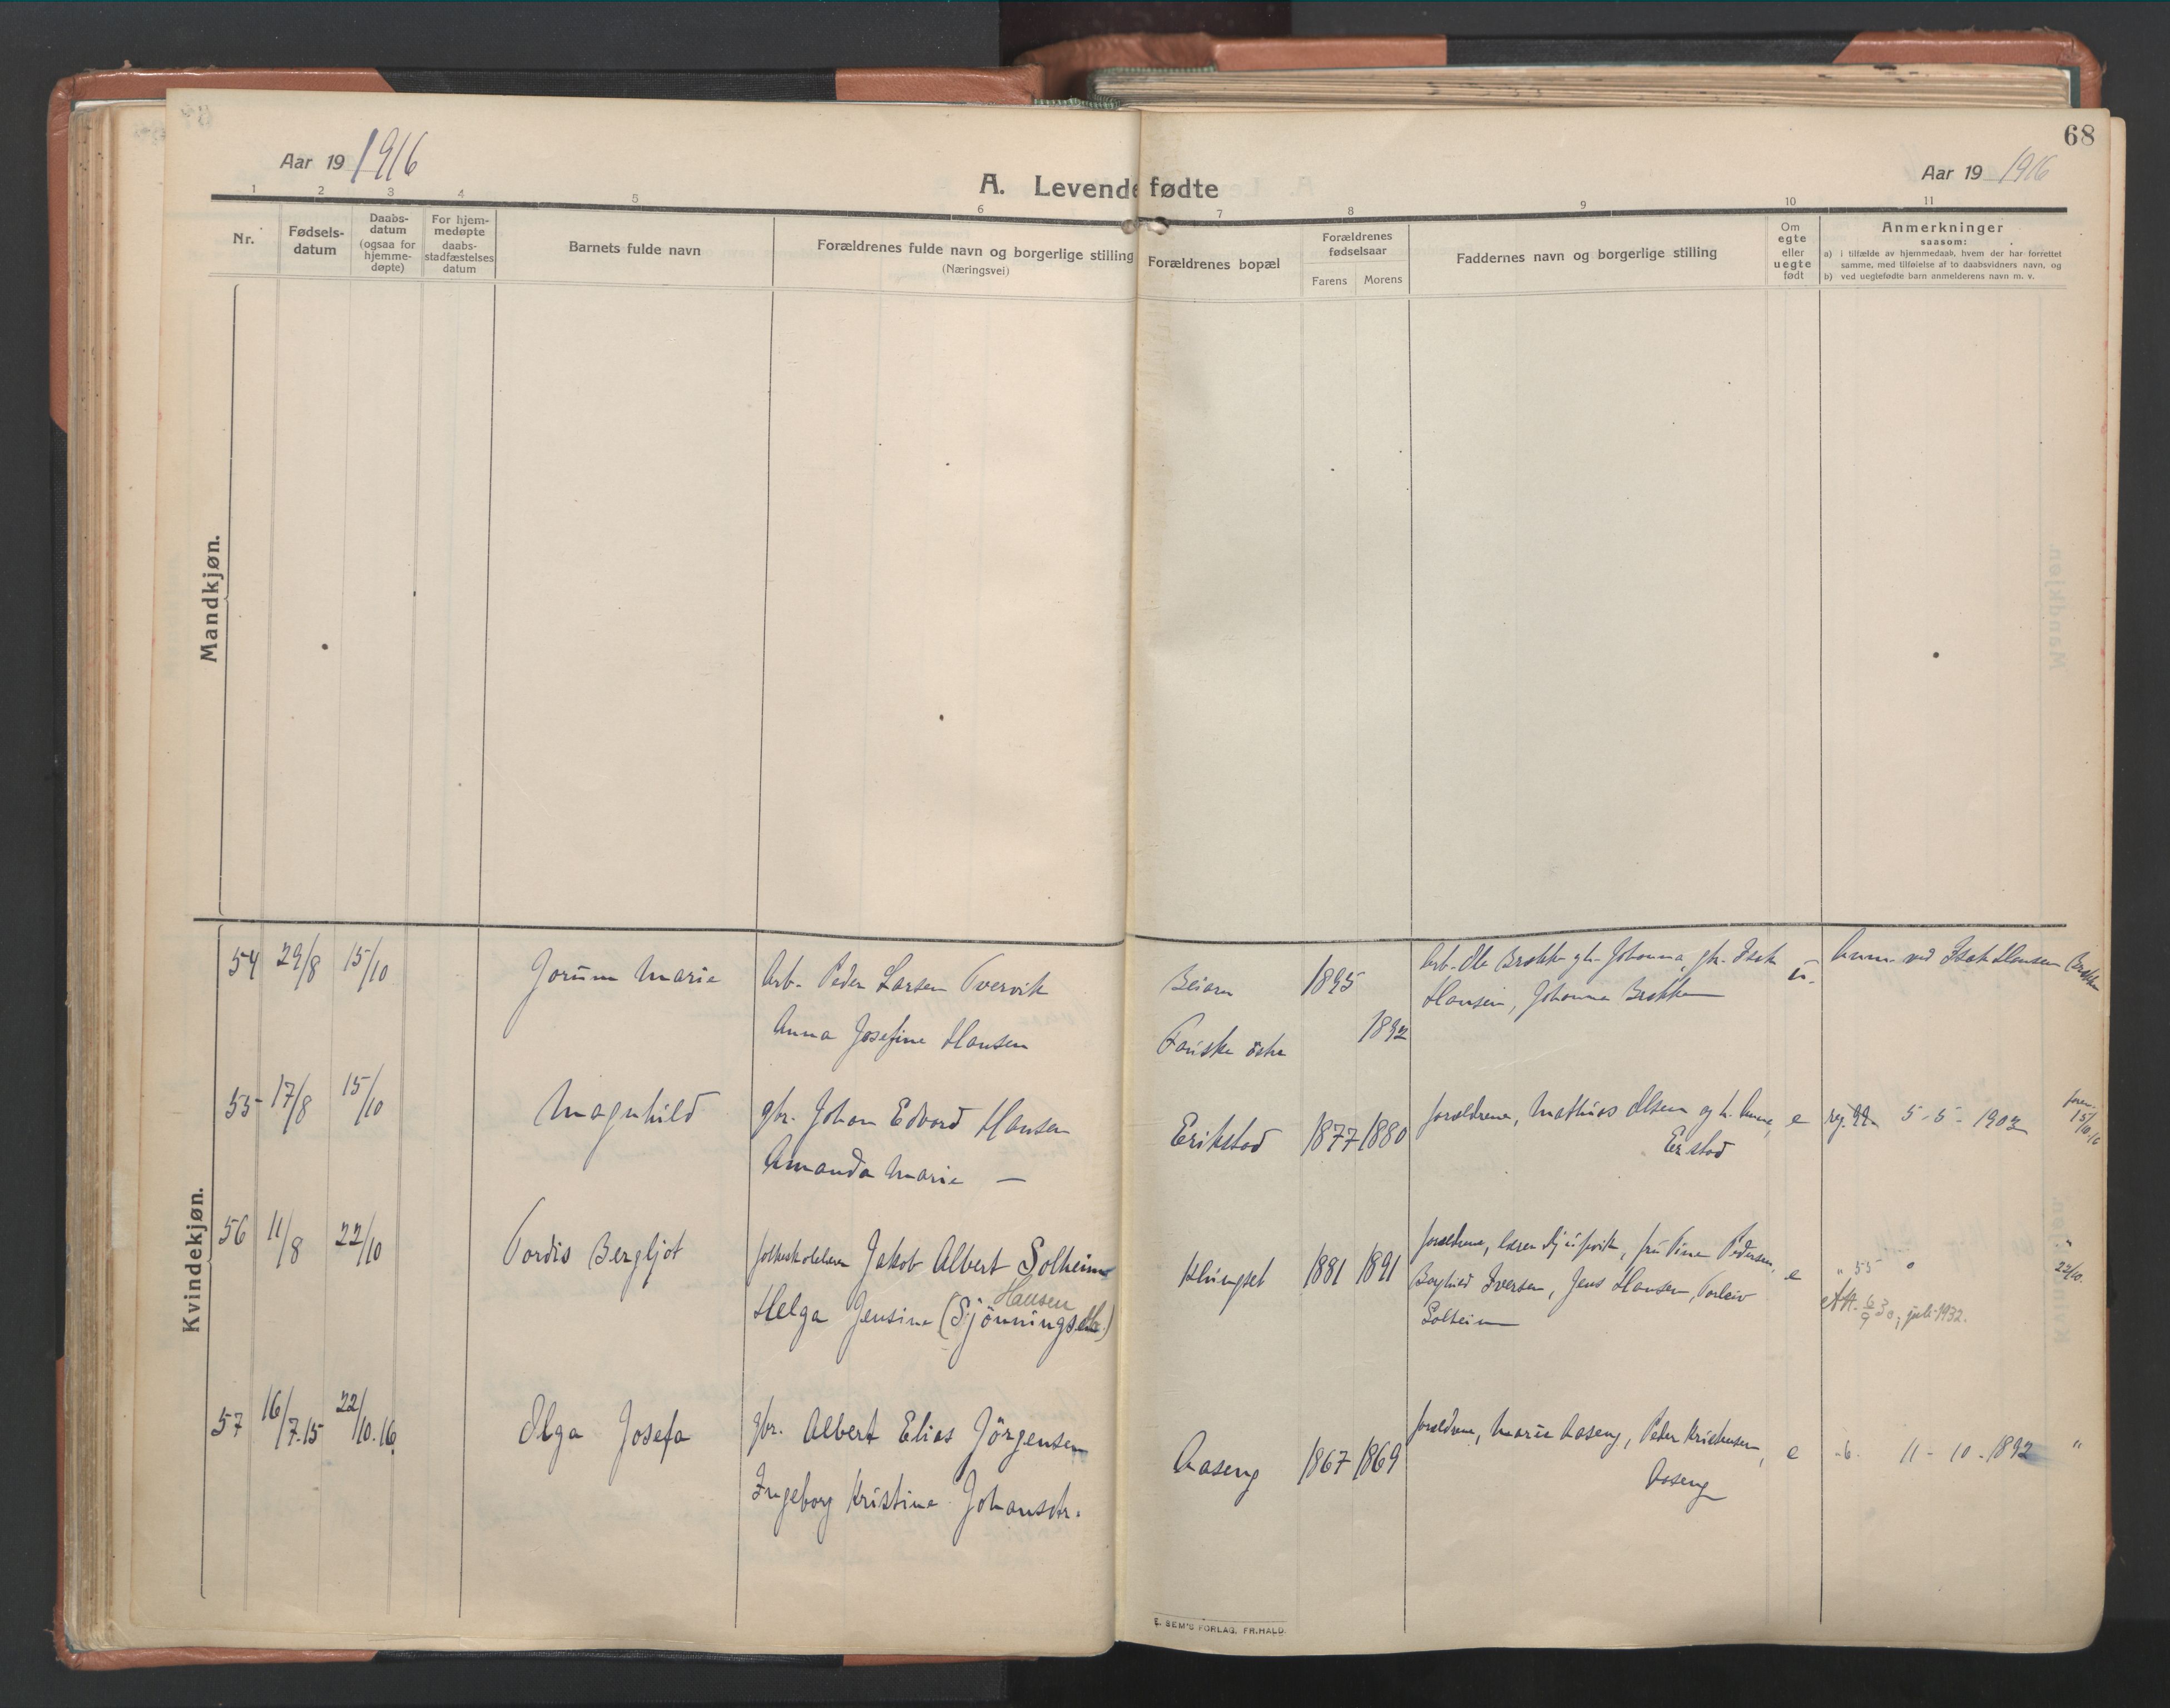 68
Aar 19 1916
A. Levendefødte
Aar 19 1916
1 2 3 4 5 6 7 8 9 10 11
Nr.
Fødsels-
datum
Daabs-
datum
(ogsaa for
hjemme-
døpte)
For hjem-
medøpte
daabs-
stadfæstelses
datum
Barnets fulde navn
Forældrenes fulde navn og borgerlige stilling
(Næringsvei)
Forældrenes bopæl
Forældrenes
fødselsaar
Farens Morens
Faddernes navn og borgerlige stilling
Om
egte
eller
uegte
født
Anmerkninger
saasom:
a) i tilfælde av hjemmedaab, hvem der har forrettet
samme, med tilføielse af to daabsvidners navn, og
b) ved uegtefødte barn anmelderens navn m. v.
Mandkjøn.
Kvindekjøn.
54 29/8 15/10 Jorunn Marie Arb. Peder Larsen Tvervik Beiarn 1895 Arb. Ole Brekke og h. Johanna, gbr. Isak u. Anm. ved Isak Hansen Brekke
Hansen, Johanna Brekke
Anna Josefine Hansen Fauske østre 1892
55 17/8 15/10 Magnhild gbr. Johan Edvard Hansen Erikstad 1877 1880 forældrene, Mathias Olsen og h. Anna, e reg. 5-5-1902 15/10.16
Erstad
Amanda Marie —
56 11/8 22/10 Tordis Bergljot folkeskolelærer Jakob Albert Solheim Klungset 1881 1891 forældrene, lærer Djupvik, fru Tina Pedersen, e " 55 " " 22/10.
Borghild Iversen, Jens Hansen, Torleiv
Solheim
Hansen
Helga Jensine (Sjönningsdtr.)
Att. 6/9 30, juli 1932.
57 16/7.15 22/10.16 Olga Josefa gbr. Albert Elias Jörgensen Aaseng 1867 1869 forældrene, Marie Aaseng, Peder Kristensen, e -6. 11-10-1892 "
Aaseng
Ingeborg Kristine Johansdtr.
E. SEM'S FORLAG, FR.HALD.